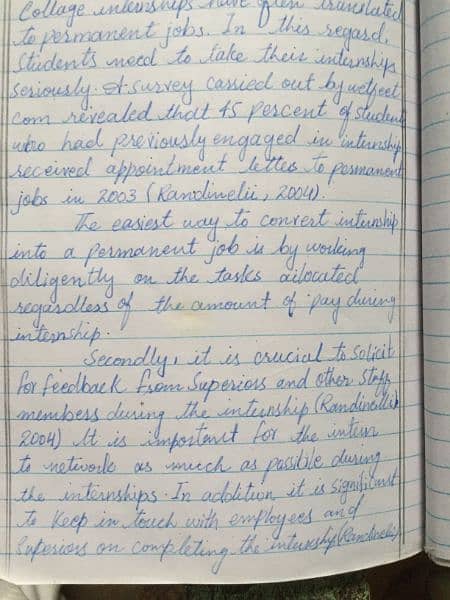 Collage internships have often translated
to permanent jobs. In this regard,
Students need to take their internships
seriously. A survey carried out by wetfeet
com revealed that 45 percent of student
who had previously engaged in internship
received appointment letter to permanent
jobs in 2003 (Randinelii, 2004).
The easiest way to convert internship
into a permanent job is by working
diligently on the tasks allocated
regardless of the amount of pay during
internship.
Secondly, it is crucial to solicit
for feedback from superiors and other staff
members during the internship (Randinelli
2004) It is important for the intern
to network as much as possible during
the internships. In addition it is significant
to keep in touch with employees and
superiors on completing the internship (Randinelii)